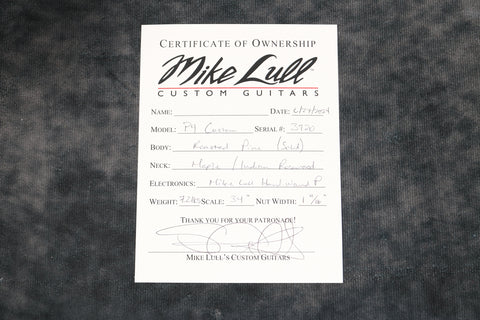 CERTIFICATE OF OWNERSHIP
Mike Lull
CUSTOM GUITARS
NAME: DATE:
MODEL: P4 Custom SERIAL #: 3920
BODY: Roasted Pine (Solid)
NECK: Maple / Indian Rosewood
ELECTRONICS: Mike Lull Hand wound P
WEIGHT: SCALE: 34" NUT WIDTH:
THANK YOU FOR YOUR PATRONAGE!
MIKE LULL'S CUSTOM GUITARS